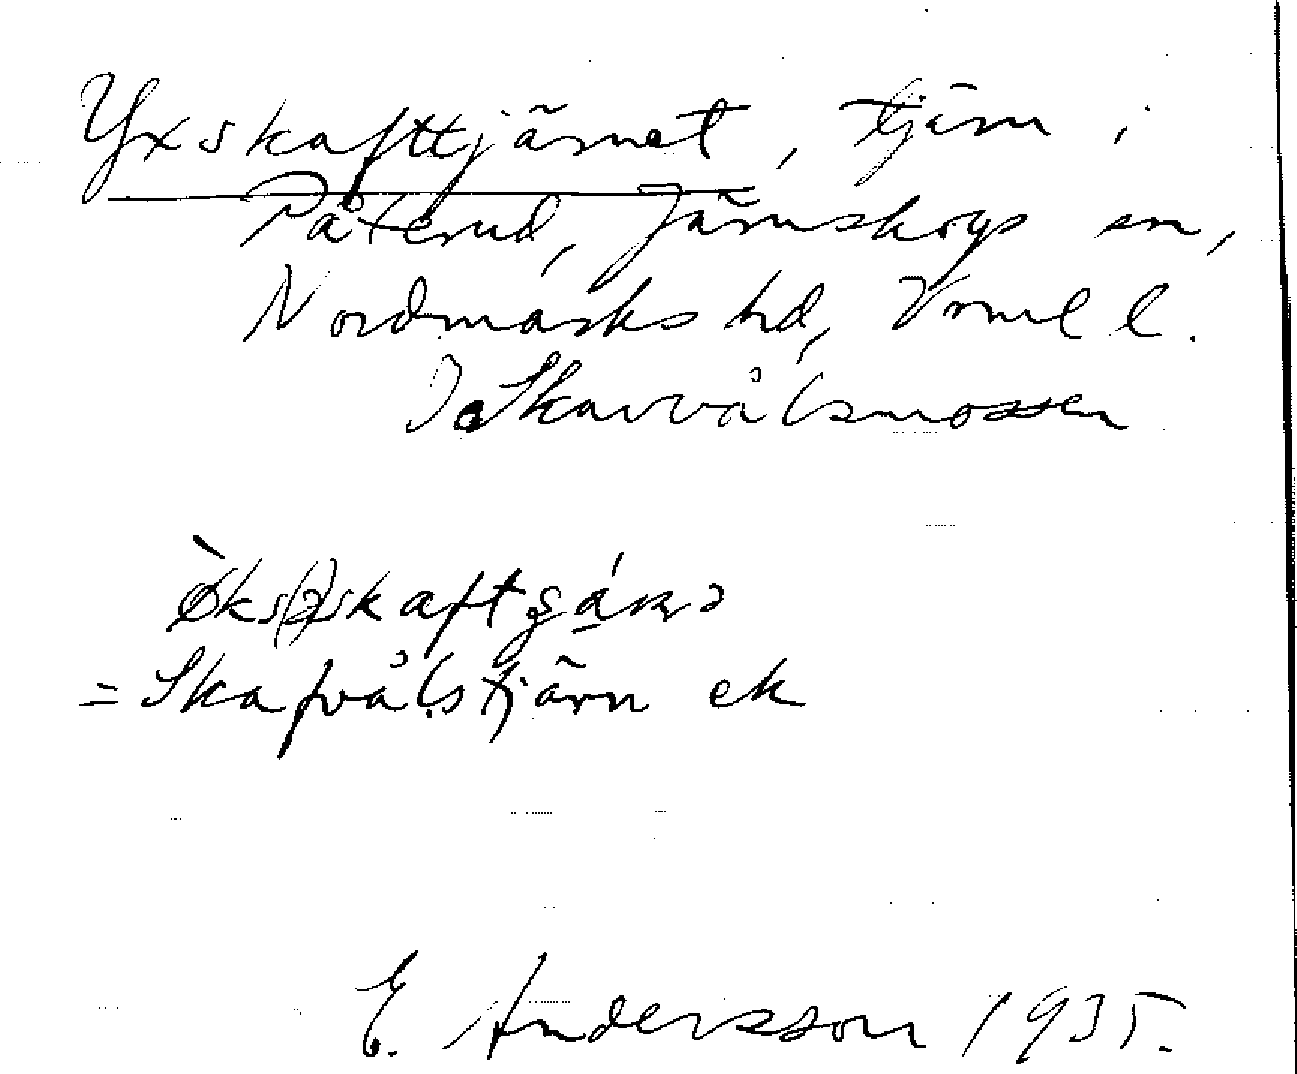 Yxskafttjärnet, tjärn i
Påterud, Järnskogs sn,
Nordmarks hd, Vrml l.
I Skarvvålsmossen
= Skafvålstjärn ek
E. Andersson 1935.